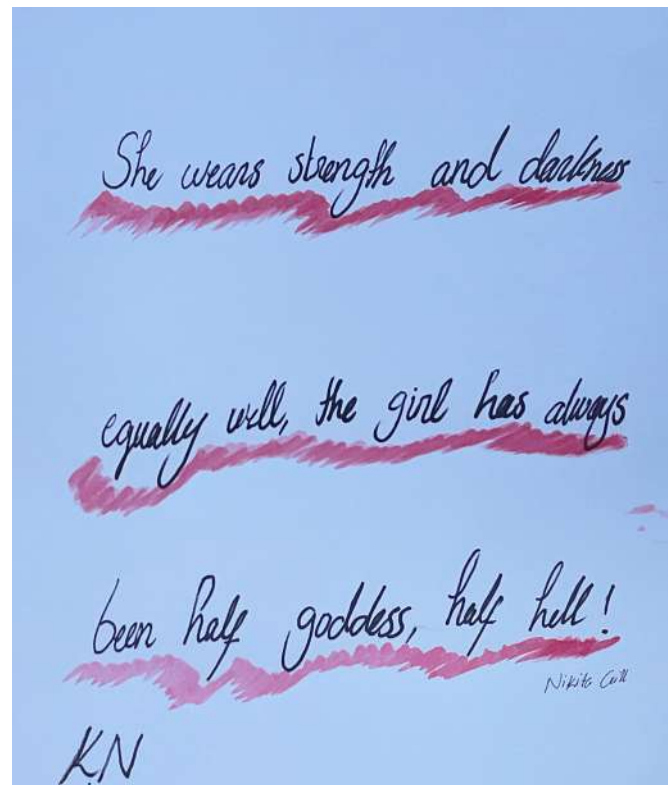 She wears strength and darkness
equally well, the girl has always
been half goddess, half hell!
Nikita Gill
KN